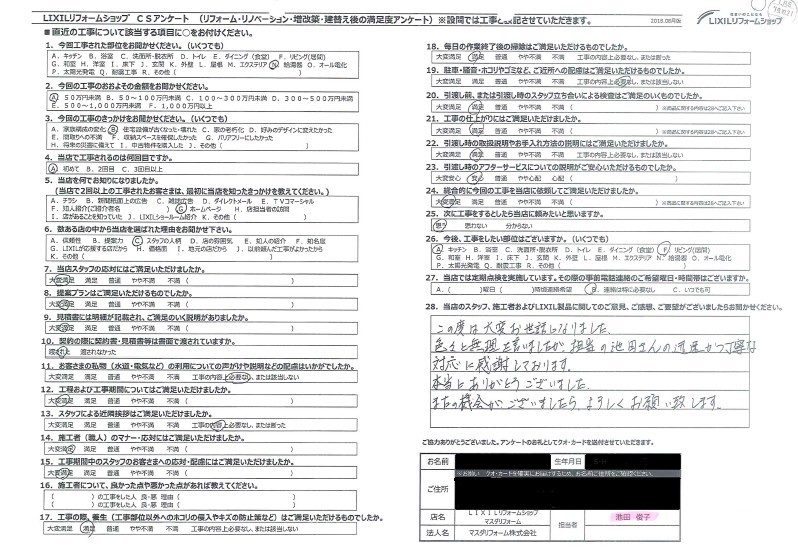 LIXILリフォームショップ CSアンケート (リフォーム・リノベーション・増改築・建替え後の満足度アンケート) ※設問では工事と 記させていただきます。
2018.08月版
LIXILリフォームショップ
■直近の工事について該当する項目に○をお付けください。
1. 今回工事された部位をお聞かせください。(いくつでも)
A. キッチン B. 浴室 C. 洗面所・脱衣所 D. トイレ E. ダイニング(食堂) F. リビング(居間)
G. 和室 H. 洋室 I. 床下 J. 玄関 K. 外壁 L. 屋根 M. エクステリア N. 給湯器 O. オール電化
P. 太陽光発電 Q. 耐震工事 R. その他 ( )
2. 今回の工事のおおよその金額をお聞かせください。
A. 50万円未満 B. 50～100万円未満 C. 100～300万円未満 D. 300～500万円未満
E. 500～1,000万円未満 F. 1,000万円以上
3. 今回の工事のきっかけをお聞かせください。(いくつでも)
A. 家族構成の変化 B. 住宅設備が古くなった・壊れた C. 家の老朽化 D. 好みのデザインに変えたかった
E. 間取りへの不満 F. 収納スペースを確保したかった G. バリアフリーにしたかった
H. 将来の災害に備えて I. 中古物件を購入した J. その他 ( )
4. 当店で工事されるのは何回目ですか。
A. 初めて B. 2回目 C. 3回目以上
5. 当店を何でお知りになりましたか。
(当店で2回以上の工事されたお客さまは、最初に当店を知ったきっかけを教えてください。)
A. チラシ B. 新聞紙面上の広告 C. 雑誌広告 D. ダイレクトメール E. TVコマーシャル
F. 知人紹介(ご紹介者名 ) G. ホームページ H. 店担当者の訪問
I. 店があることを知っていた J. LIXILショールーム紹介 K. その他 ( )
6. 数ある店の中から当店を選ばれた理由をお聞かせ下さい。
A. 信頼性 B. 提案力 C. スタッフの人柄 D. 店の雰囲気 E. 知人の紹介 F. 知名度
G. LIXILが応援する店だから H. 価格面 I. 地元の店だから J. 以前頼んだ工事がよかったから
K. その他 ( )
7. 当店スタッフの応対にはご満足いただけましたか。
大変満足 満足 普通 やや不満 不満
8. 提案プランはご満足いただけるものでしたか。
大変満足 満足 普通 やや不満 不満
9. 見積書には明細が記載され、ご満足のいく説明がありましたか。
大変満足 満足 普通 やや不満 不満
10. 契約の際に契約書・見積書等は書面で渡されていますか。
渡された 渡されなかった
11. お客さまの私物(水道・電気など)の利用についての声がけや説明などの配慮はいかがでしたか。
大変満足 満足 普通 やや不満 不満 工事の内容上必要なし、または該当しない
12. 工程および工事期間についてはご満足いただけましたか。
大変満足 満足 普通 やや不満 不満
13. スタッフによる近隣挨拶はご満足いただけましたか。
大変満足 満足 普通 やや不満 不満 工事の内容上必要なし、または断った
14. 施工者(職人)のマナー・応対にはご満足いただけましたか。
大変満足 満足 普通 やや不満 不満
15. 工事期間中のスタッフのお客さまへの応対・配慮にはご満足いただけましたか。
大変満足 満足 普通 やや不満 不満
16. 施工者について、良かった点や悪かった点があれば教えてください。
( )の工事をした人 良・悪 理由 ( )
( )の工事をした人 良・悪 理由 ( )
17. 工事の際、養生(工事部位以外へのホコリの侵入やキズの防止策など)はご満足いただけるものでしたか。
大変満足 満足 普通 やや不満 不満 工事の内容上必要なし、または該当しない
18. 毎日の作業終了後の掃除はご満足いただけるものでしたか。
大変満足 満足 普通 やや不満 不満 工事の内容上必要なし、または断った
19. 駐車・騒音・ホコリやゴミなど、ご近所への配慮はご満足いただけるものでしたか。
大変満足 満足 普通 やや不満 不満 工事の内容上必要なし、または該当しない
20. 引渡し前、または引渡し時のスタッフ立ち合いによる検査はご満足のいくものでしたか。
大変満足 満足 普通 やや不満 不満 ( ) ※商品に関する内容は28へご記入下さい
21. 工事の仕上がりにはご満足いただけましたか。
大変満足 満足 普通 やや不満 不満 ( ) ※商品に関する内容は28へご記入下さい
22. 引渡し時の取扱説明やお手入れ方法の説明にはご満足いただけましたか。
大変満足 満足 普通 やや不満 不満 工事の内容上必要なし、または該当しない
23. 引渡し時のアフターサービスについての説明がご安心いただけるものでしたか。
大変安心 安心 普通 やや心配 心配 ( )
24. 総合的に今回の工事を当店に依頼してご満足いただけましたか。
大変満足 満足 普通 やや不満 不満 ( ) ※商品に関する内容は28へご記入下さい
25. 次に工事をするとしたら当店に頼みたいと思いますか。
思う 思わない 分からない
26. 今後、工事をしたい部位はございますか。(いくつでも)
A. キッチン B. 浴室 C. 洗面所・脱衣所 D. トイレ E. ダイニング(食堂) F. リビング(居間)
G. 和室 H. 洋室 I. 床下 J. 玄関 K. 外壁 L. 屋根 M. エクステリア N. 給湯器 O. オール電化
P. 太陽光発電 Q. 耐震工事 R. その他 ( )
27. 当店では定期点検を実施しています。その際の事前電話連絡のご希望曜日・時間帯はございますか。
A. ( )曜日 ( )時頃連絡希望 B. 連絡は特に必要なし C. いつでも可
28. 当店のスタッフ、施工者およびLIXIL製品に関してのご意見、ご感想、ご要望がございましたらお聞かせください。
この度は大変お世話になりました。
色々と無理を言いましたが担当の池田さんの迅速かつ丁寧な
対応に感謝しております。
本当にありがとうございました。
またの機会がございましたら よろしくお願い致します。
ご協力ありがとうございました。アンケートのお礼としてクオ・カードを送付させていただきます。
お名前
生年月日
※お願い クオ・カードを確実にお届けするため、お名前ご住所をご確認ください。
ご住所
店名 LIXILリフォームショップ マスダリフォーム 担当者 池田 俊子
法人名 マスダリフォーム株式会社